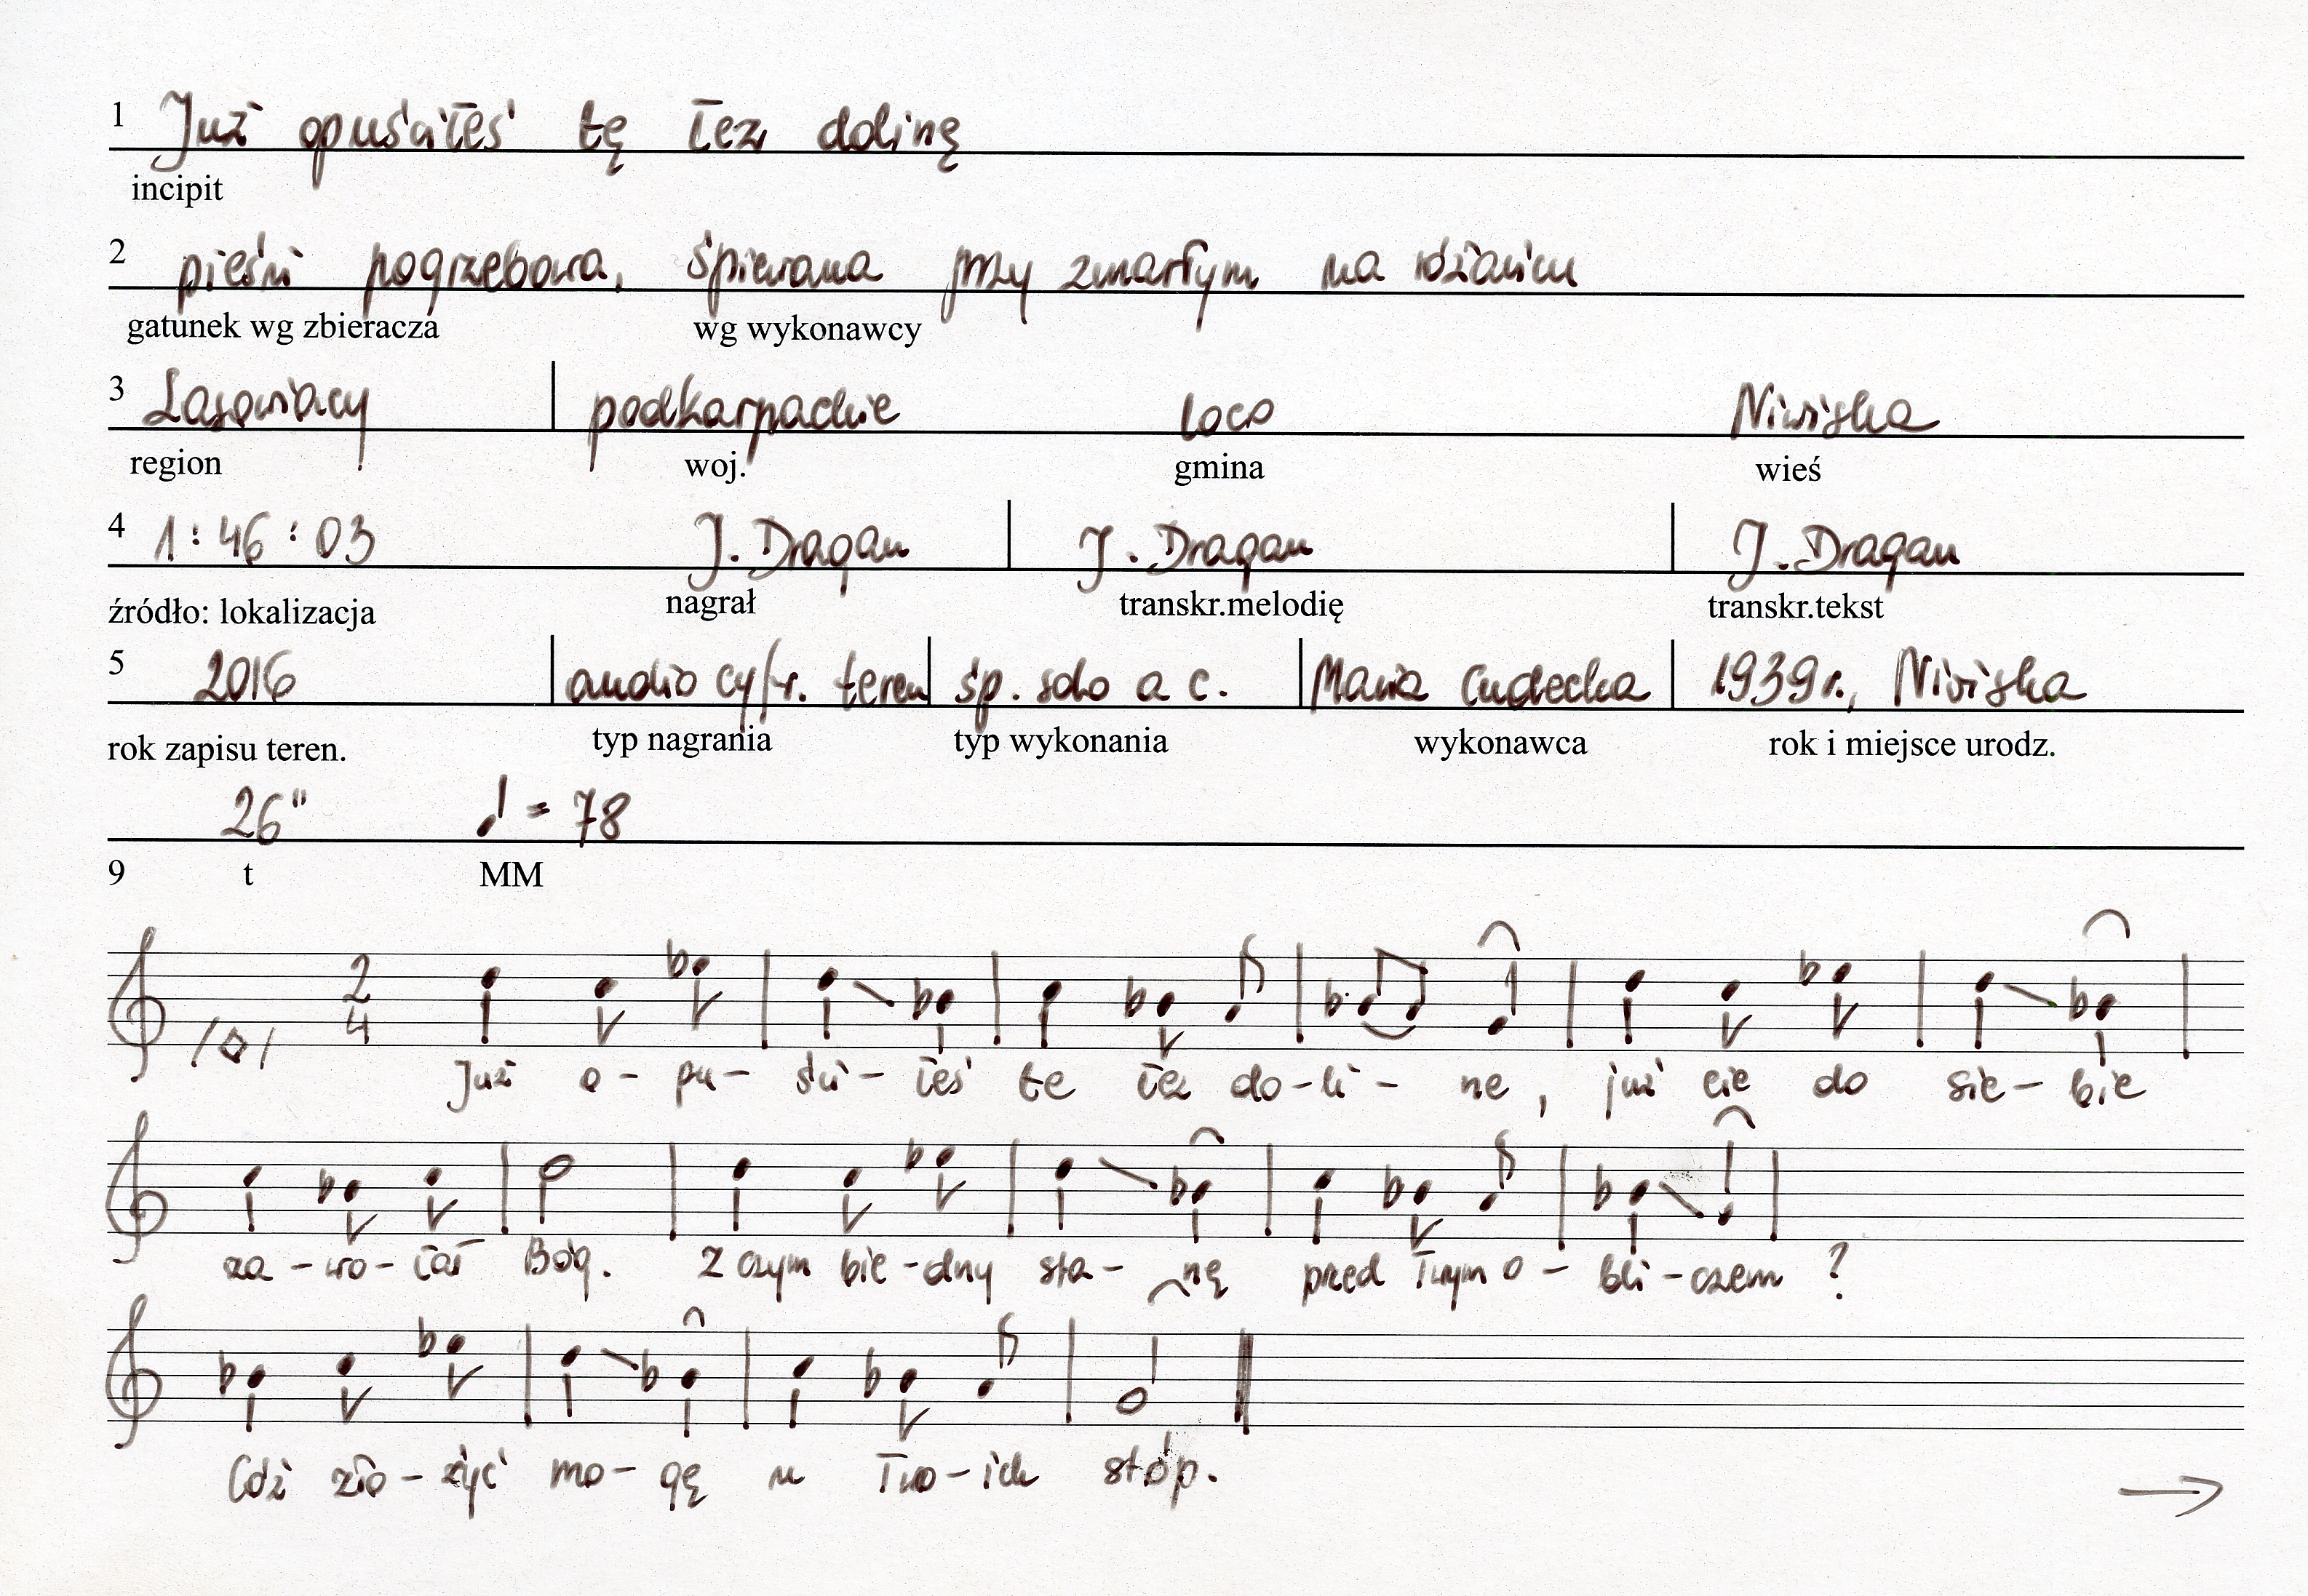 1 Już opuściłeś tę łez dolinę
incipit
2 pieśń pogrzebowa, śpiewana przy zmarłym na różańcu
gatunek wg zbieracza wg wykonawcy
3 Lasowiacy podkarpackie loco Niwiska
region woj. gmina wieś
4 1:46:03 J. Dragan J. Dragan J. Dragan
źródło: lokalizacja nagrał transkr.melodię transkr.tekst
5 2016 audio cyfr. teren śp. solo a c. Maria Cudecka 1939r., Niwiska
rok zapisu teren. typ nagrania typ wykonania wykonawca rok i miejsce urodz.
26" ♩ = 78
9 t MM
2
4
Już o-pu-ści-łeś te łez do-li-ne, już cie do sie-bie
za-wo-łał Bóg. Z czym bie-dny sta-nę przed Twym o-bli-czem ?
Cóż zło-żyć mo-gę u Two-ich stóp.